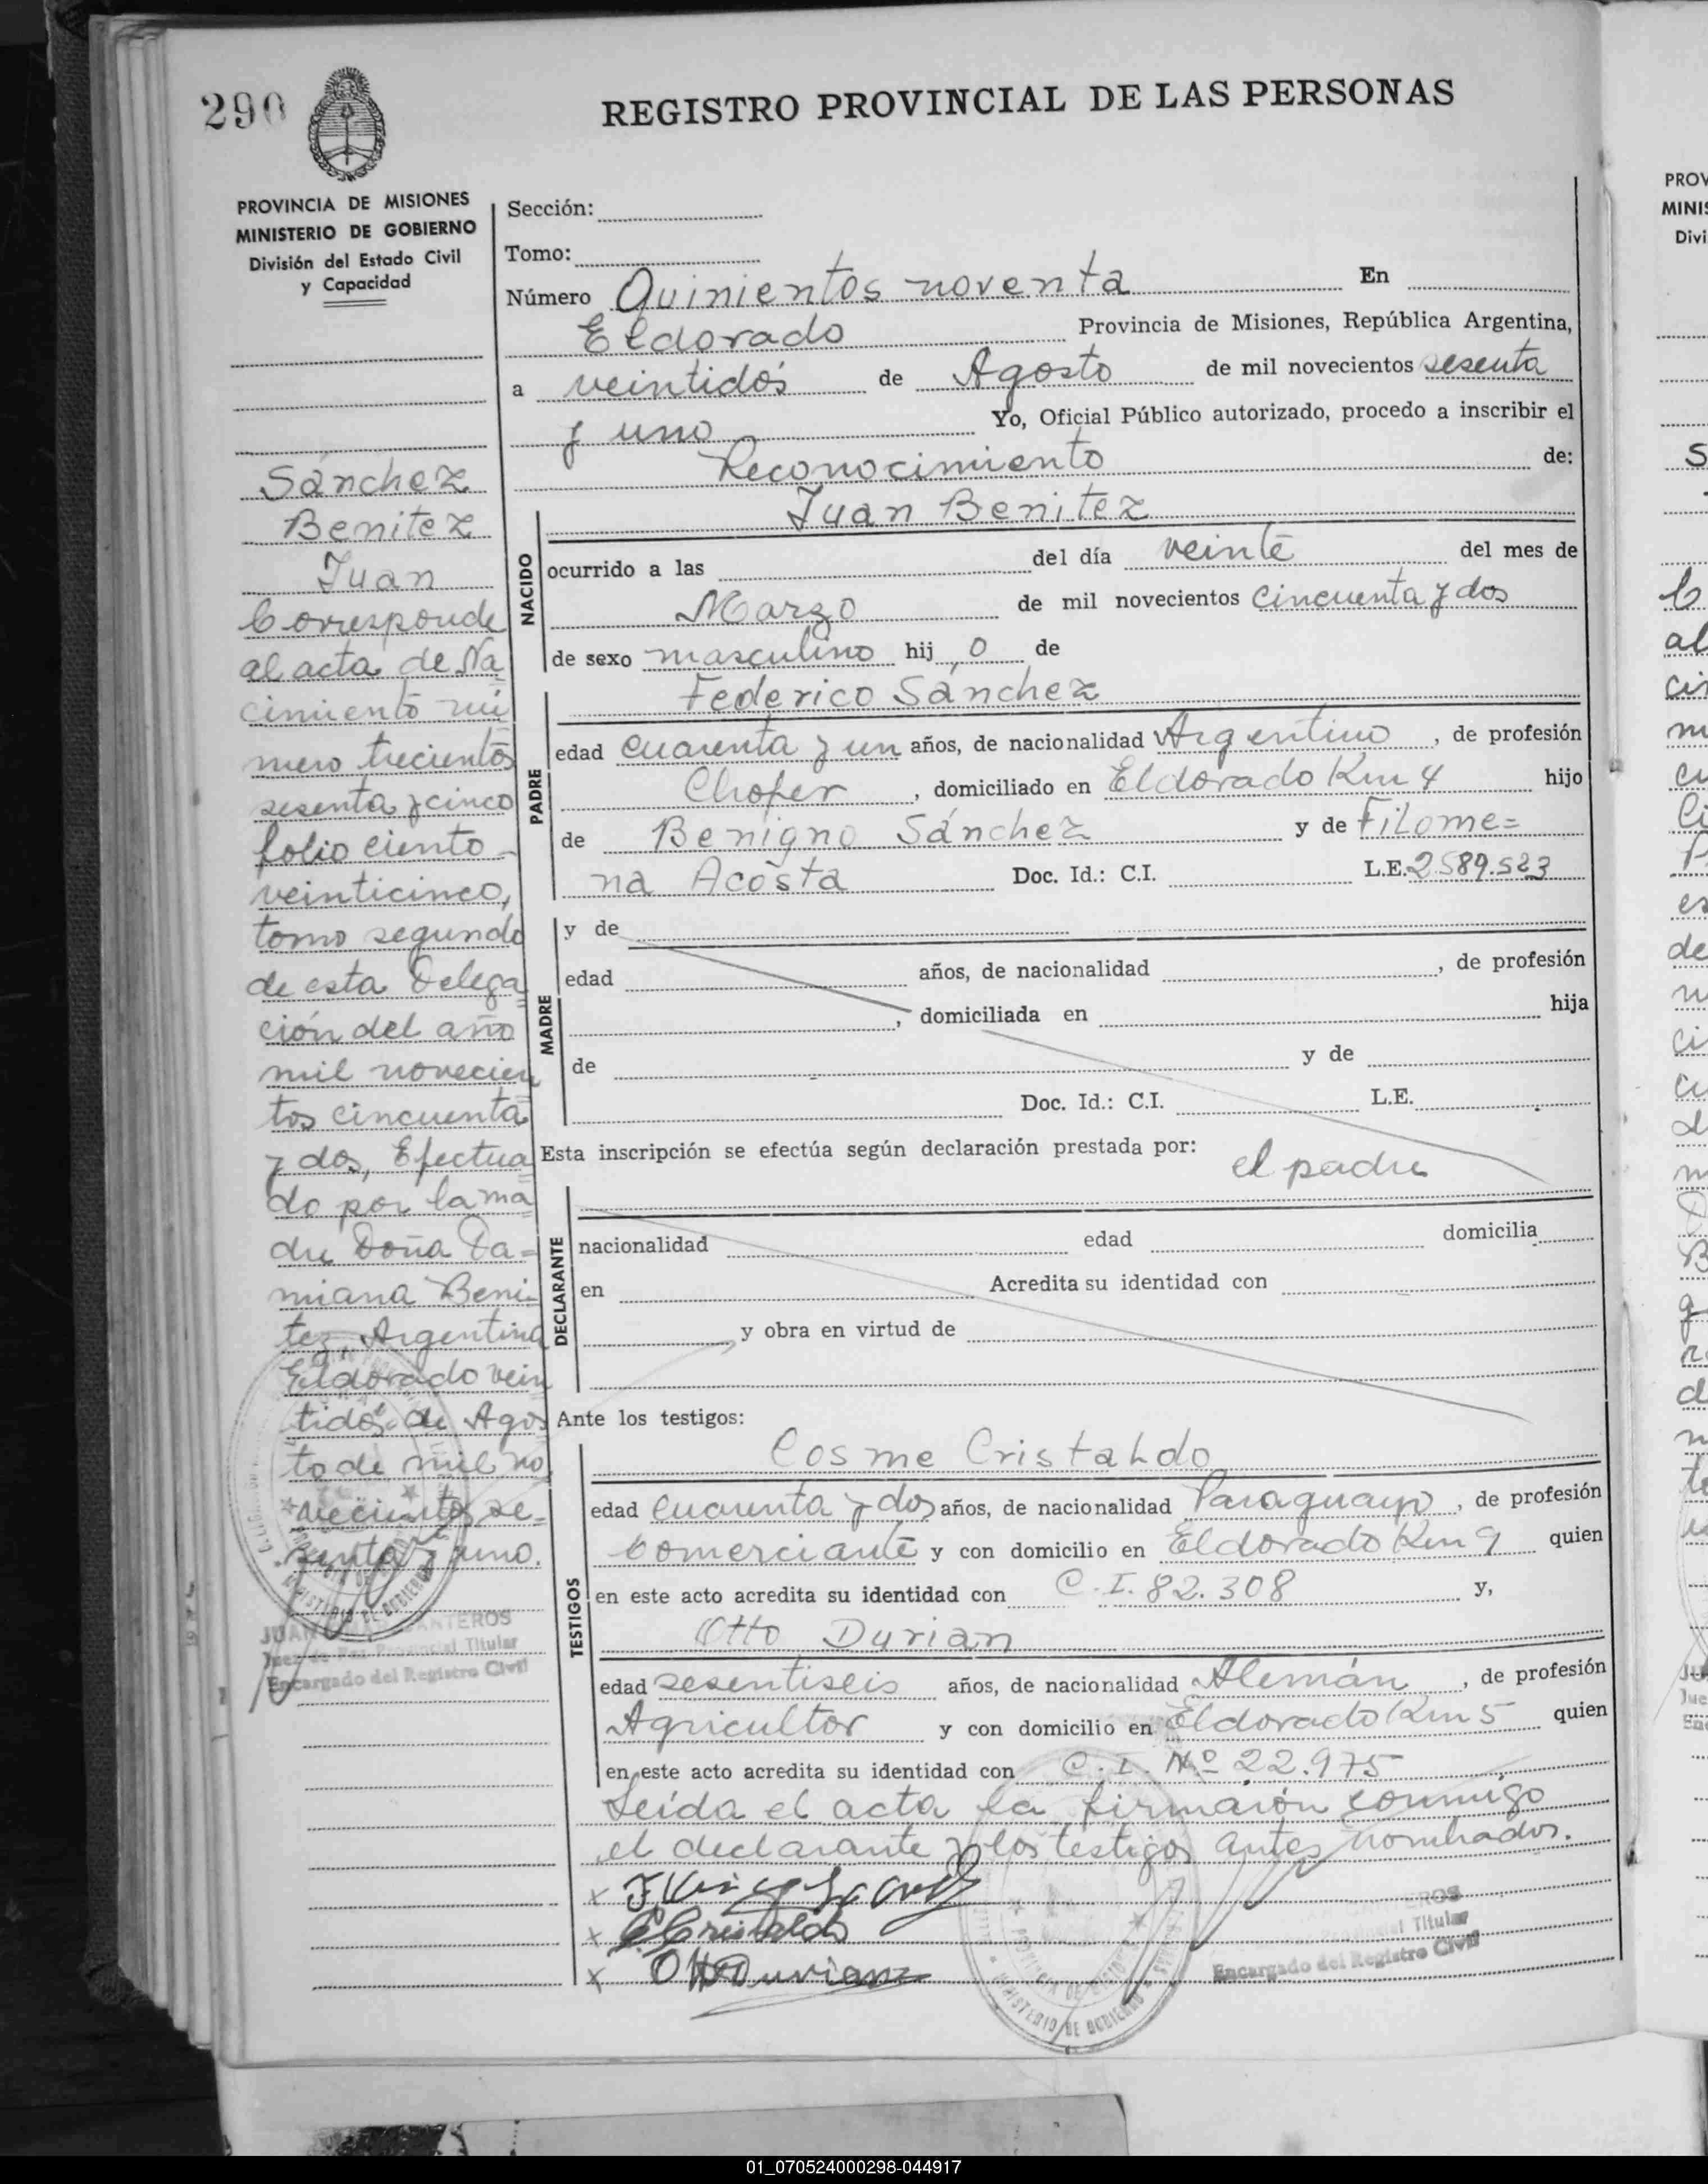 290
REGISTRO PROVINCIAL DE LAS PERSONAS
PROVINCIA DE MISIONES
MINISTERIO DE GOBIERNO
División del Estado Civil
y Capacidad
Sánchez
Benitez
Juan
Corresponde
al acta de Na
cimiento nú
mero trecientos
sesenta y cinco
folio ciento
veinticinco,
tomo segundo
de esta Delega
ción del año
mil novecien
tos cincuenta
y dos, Efectua
do por la ma
dre Doña Da=
miana Beni-
tez, Argentina
Eldorado vein
tidós de Agos
to de mil no
vecientos se-
senta y uno.
JUAN
Juez de Paz Provincial Titular
Encargado del Registro Civil
Sección:
Tomo:
Número Quinientos noventa En
Eldorado Provincia de Misiones, República Argentina,
a veintidós de Agosto de mil novecientos sesenta
y uno Yo, Oficial Público autorizado, procedo a inscribir el
Reconocimiento de:
Juan Benitez
NACIDO
ocurrido a las del día veinte del mes de
Marzo de mil novecientos cincuenta y dos
de sexo masculino hij o de
Federico Sánchez
PADRE
edad cuarenta y un años, de nacionalidad Argentino, de profesión
Chofer, domiciliado en Eldorado Km 4 hijo
de Benigno Sánchez y de Filome=
na Acosta Doc. Id.: C.I. L.E. 2.589.523
MADRE
y de
edad años, de nacionalidad , de profesión
, domiciliada en hija
de y de
Doc. Id.: C.I. L.E.
Esta inscripción se efectúa según declaración prestada por: el padre
DECLARANTE
nacionalidad edad domicilia
en Acredita su identidad con
y obra en virtud de
Ante los testigos:
TESTIGOS
Cosme Cristaldo
edad cuarenta y dos años, de nacionalidad Paraguayo, de profesión
Comerciante y con domicilio en Eldorado Km 9 quien
en este acto acredita su identidad con C.I. 82.308 y,
Otto Durian
edad sesentiseis años, de nacionalidad Alemán, de profesión
Agricultor y con domicilio en Eldorado Km 5 quien
en este acto acredita su identidad con C.I. Nº 22.975
Leída el acta la firmarón conmigo
el declarante y los testigos antes nombrados.
x
x C Cristaldo
x Otto Durian
Titular
Encargado del Registro Civil
PROV
MINIS
Divi
01_070524000298-044917